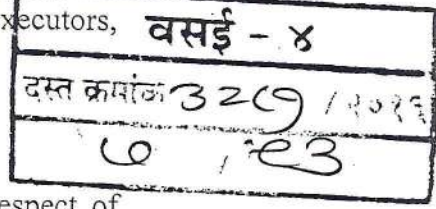 xecutors, वसई - ४
दस्त क्रमांक ३२८१ / २०१६
७ / ९३
espect of